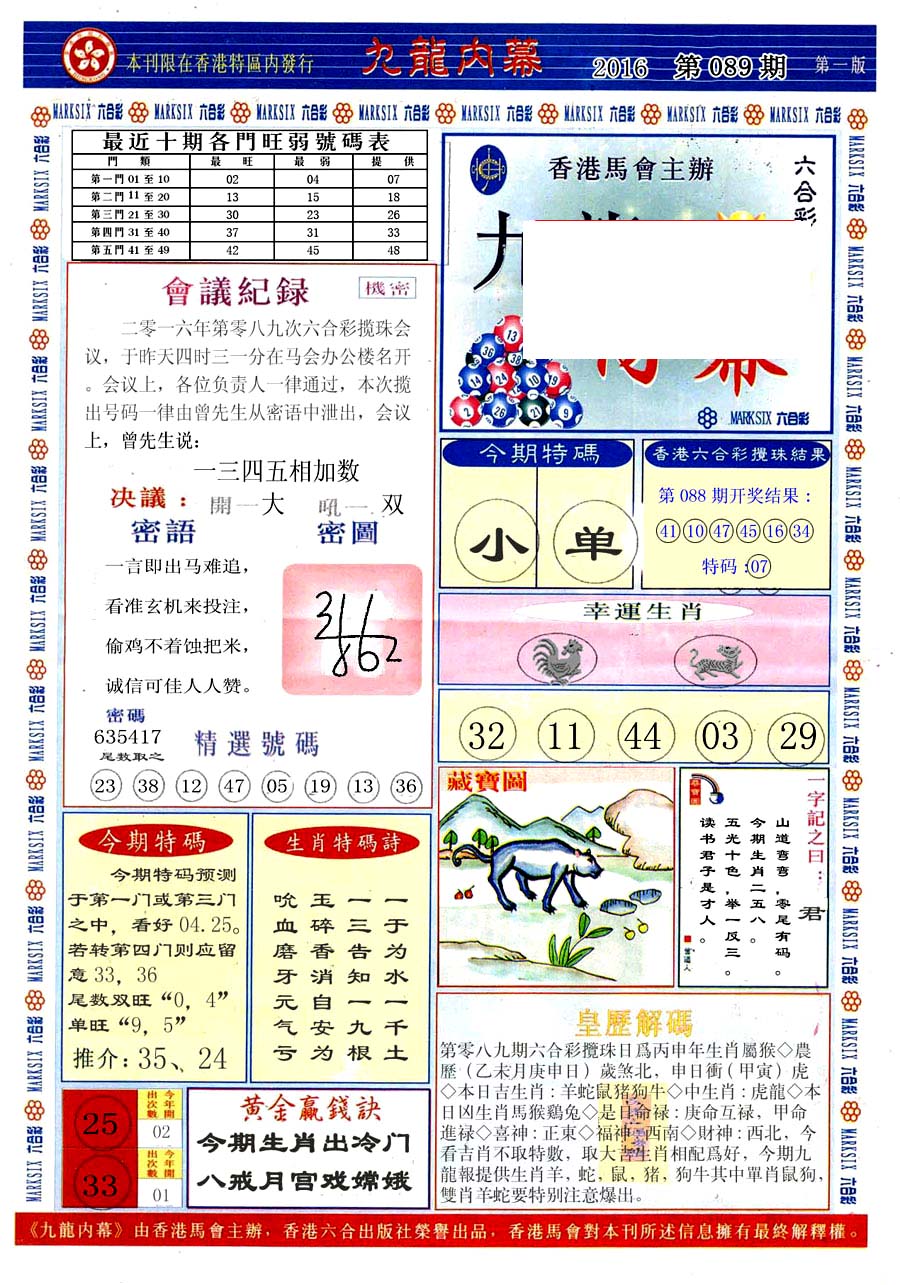 本刊限在香港特區内發行
九龍内幕
2016 第089期
第一版
MARKSIX 六合彩
最近十期各門旺弱號碼表
門 類 最 旺 最 弱 提 供
第一門 01 至 10 02 04 07
第二門 11 至 20 13 15 18
第三門 21 至 30 30 23 26
第四門 31 至 40 37 31 33
第五門 41 至 49 42 45 48
會議紀録
機密
二零一六年第零八九次六合彩揽珠会
议，于昨天四时三一分在马会办公楼名开
。会议上，各位负责人一律通过，本次揽
出号码一律由曾先生从密语中泄出，会议
上，曾先生说：
一三四五相加数
决議： 開一大 吼一双
密語
一言即出马难追，
看准玄机来投注，
偷鸡不着蚀把米，
诚信可佳人人赞。
密圖
密碼
635417
尾数取之
精選號碼
23 38 12 47 05 19 13 36
今期特碼
今期特码预测
于第一门或第三门
之中，看好04.25。
若转第四门则应留
意33，36
尾数双旺“0，4”
单旺“9，5”
推介：35、24
生肖特碼詩
吮 玉 一 一
血 碎 三 于
磨 香 告 为
牙 消 知 水
元 自 一 一
气 安 九 千
亏 为 根 土
25
今年開
出次數
02
33
今年開
出次數
01
黄金贏錢訣
今期生肖出冷门
八戒月宫戏嫦娥
香港馬會主辦
六合彩
九
内幕
13
36 38
14 24 10 19
2 26 21 9
MARKSIX 六合彩
今期特碼
小 单
香港六合彩攪珠結果
第 088 期开奖结果：
41 10 47 45 16 34
特码：07
幸運生肖
32 11 44 03 29
藏寶圖
一字記之曰：
君
山道弯弯，零尾有码。
今期生肖二五八。
五光十色，举一反三。
读书君子是才人。
皇歷解碼
第零八九期六合彩攪珠日爲丙申年生肖屬猴◇農
歷（乙未月庚申日）歲煞北，申日衝（甲寅）虎
◇本日吉生肖：羊蛇鼠猪狗牛◇中生肖：虎龍◇本
日凶生肖馬猴鷄兔◇是日命禄：庚命互禄，甲命
進禄◇喜神：正東◇福神：西南◇財神：西北，今
看吉肖不取特數，取大吉生肖相配爲好，今期九
龍報提供生肖羊，蛇，鼠，猪，狗牛其中單肖鼠狗，
雙肖羊蛇要特别注意爆出。
《九龍内幕》由香港馬會主辦，香港六合出版社榮譽出品，香港馬會對本刊所述信息擁有最終解釋權。